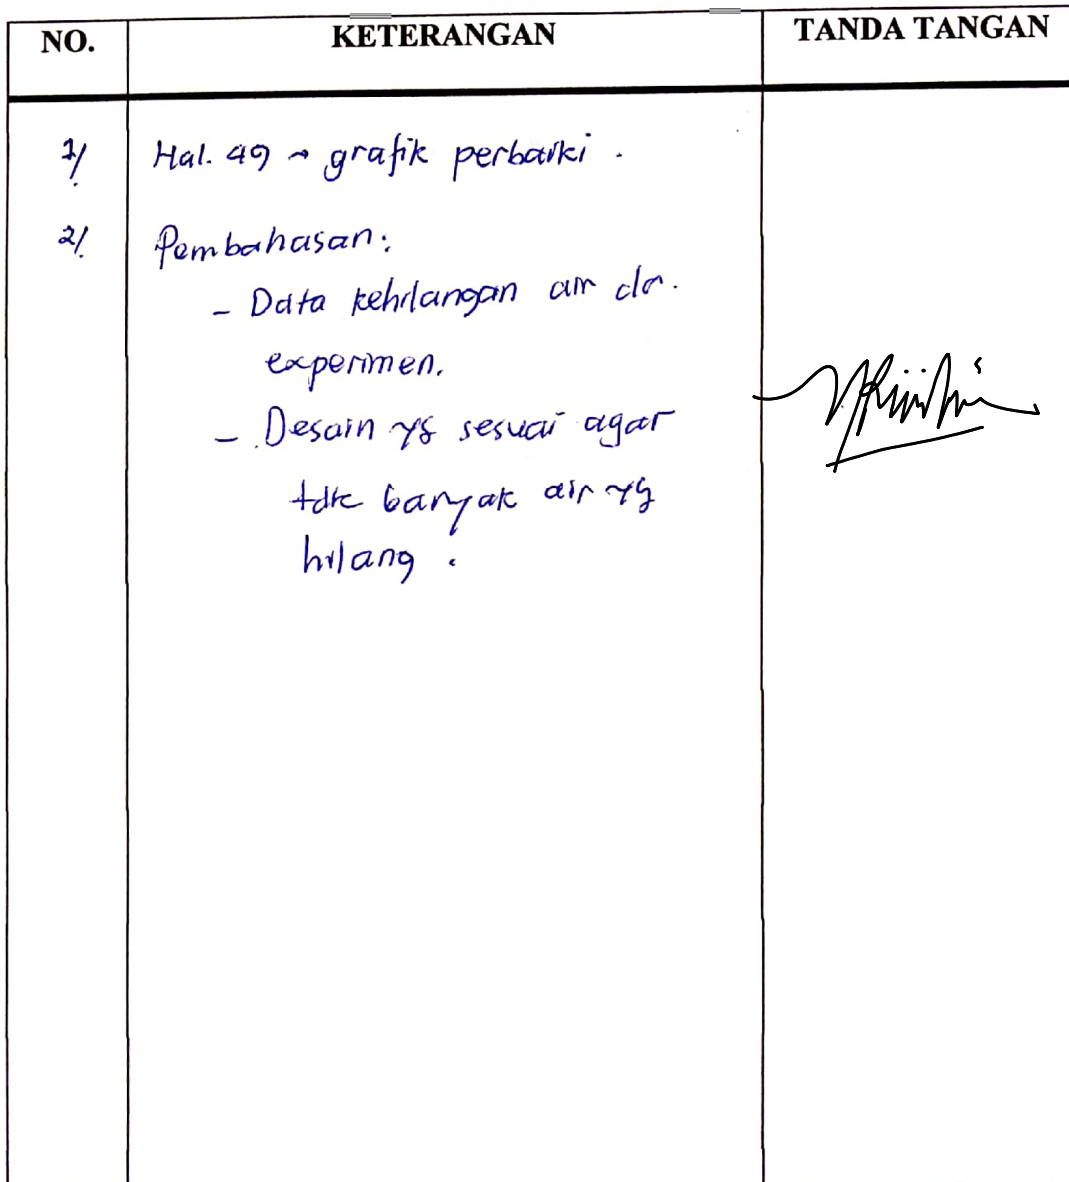 NO. KETERANGAN TANDA TANGAN
1/. Hal. 49 → grafik perbaiki.
2/. Pembahasan:
- Data kehilangan air dr.
experimen.
- Desain yg sesuai agar
tdk banyak air yg
hilang.